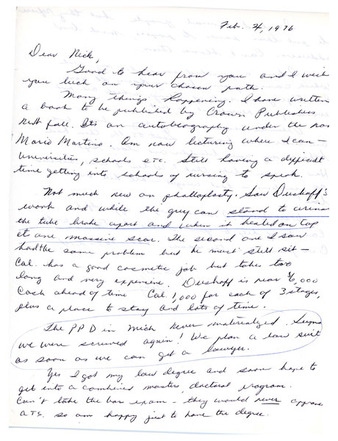 Feb. 4, 1976
Dear Nick,
Good to hear from you and I wish
you luck on your chosen path.
Many things happening. I have written
a book to be published by Crown Publishers
next fall. Its an autobiography under the
Mario Martino. Am now lecturing where I can -
Universities, schools etc. Still having a difficult
time getting into schools of nursing to speak.
Not much new on phalloplasty. Saw
work and while the guy can stand to urinate
the tube broke apart and when it healed on top
it one massive scar. The second one I saw
had the same problem but he must still sit -
Cal. has a good cosmetic job but takes too
long and very expensive. is near 6,000
cash ahead of time Cal 1,000 for each of 3 stages,
plus a place to stay and lots of time.
The PPD in Mich never materialized.
we were screwed again! We plan a law suit
as soon as we can get a lawyer.
Yes I got my law degree and soon hope to
get into a combined masters, doctoral program.
Can't take the bar exam - they would never approve
a TS. so am happy just to have the degree.